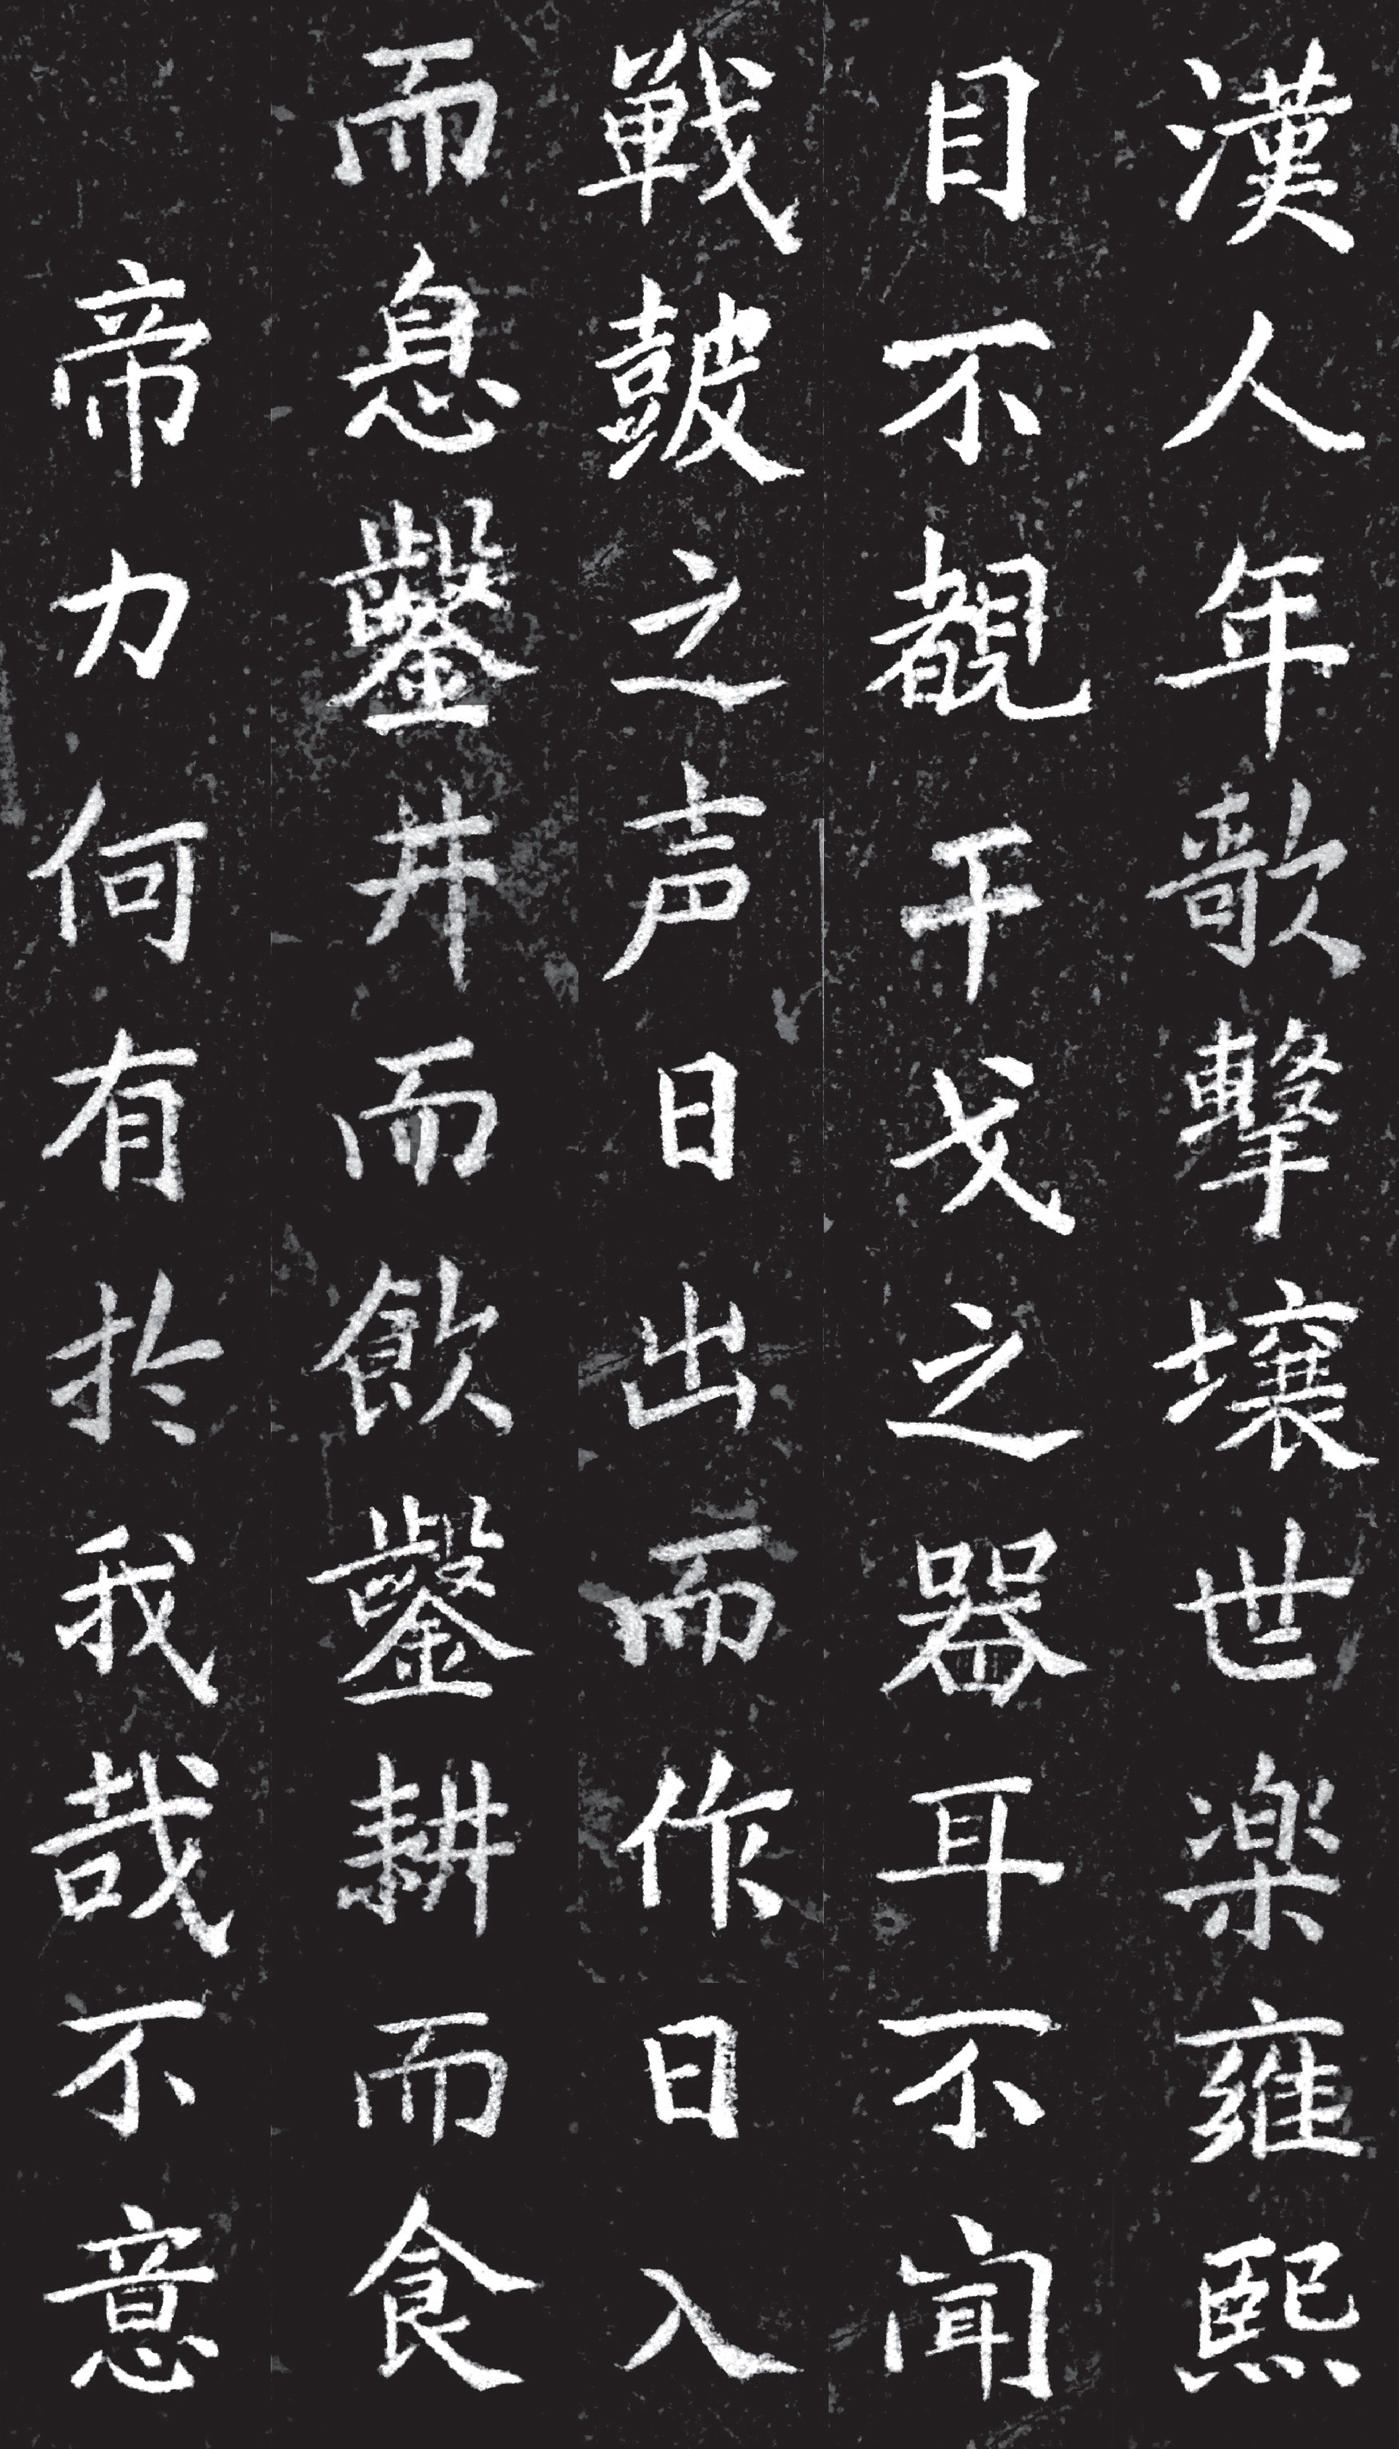 漢人年歌擊壤世楽雍熙
目不覩干戈之器耳不闻
戰皷之声日出而作日入
而息鑿井而飲鑿耕而食
帝力何有於我哉不意